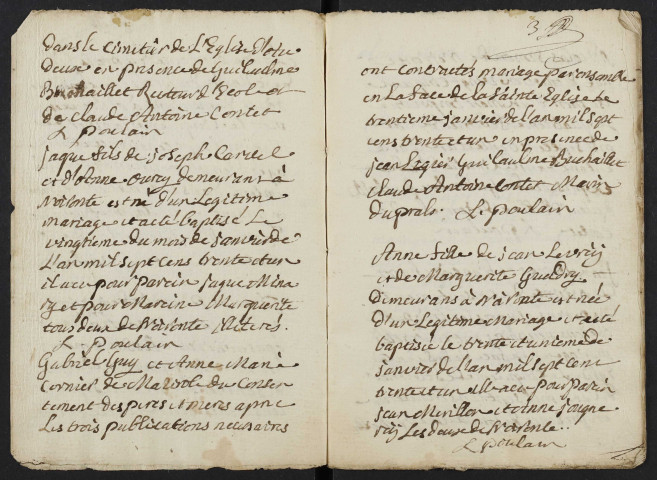 dans le cimetiere de l'Eglise dudit
deux en presence de Guillaulme
Buchaillet Recteur d'Ecole et
de Claude Antoine Contet
L. Poulain
jaque fils de joseph Cornel
et d'Anne demeurans à
est né d'un Legitime
mariage et a eté baptisé Le
vingtieme du mois de janvier de
L'an mil sept cens trente et un
il a eu pour parein jaque Mina
ry et pour Mareine Marguerite
tous deux de
L. Poulain
Gabriel Guy et Anne Marie
Cornier de du Consen
tement des peres et meres apres
Les trois publications necessaires
3
ont contractés mariage par ensamble
en La face de la Sainte Eglise Le
trentieme janvier de l'an mil sept
cens trente et un en presence de
jean Legier Guillaulme Buchaillet
Claude Antoine Contet
L. Poulain
Anne fille de jean
et de Marguerite
Demeurans à est née
d'un Legitime Mariage et a eté
baptisée le trente et unieme de
janvier de l'an mil sept cens
trente et un elle a eu pour parein
jean et anne jaque
Les deux de
L. Poulain